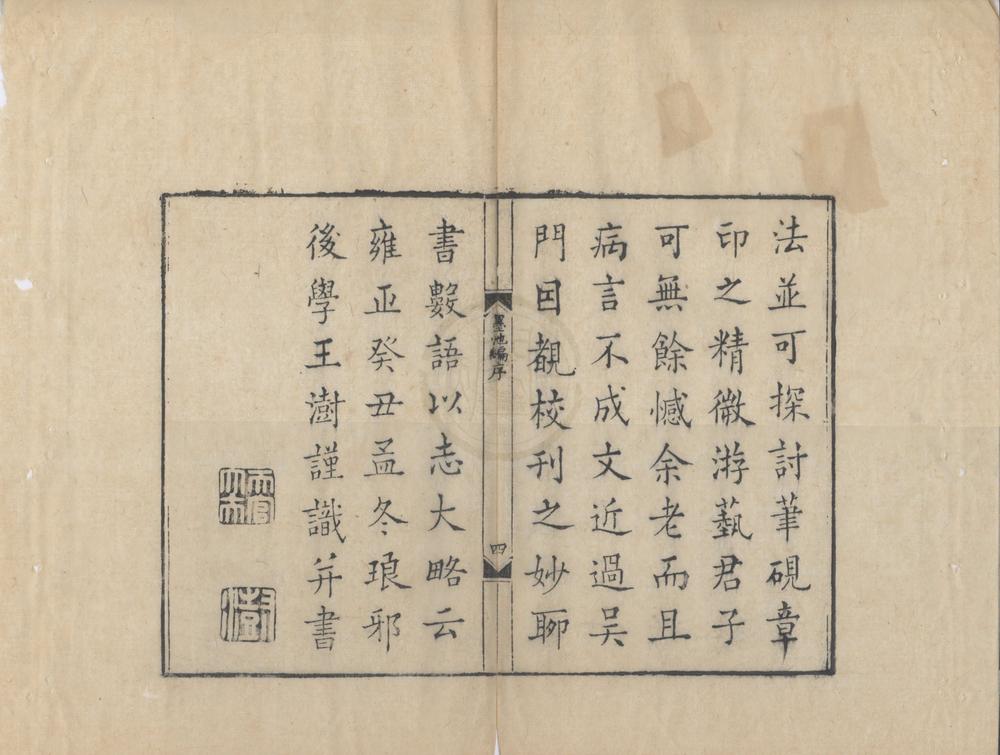 法並可探討筆硯章
印之精微游藝君子
可無餘憾余老而且
病言不成文近過吳
門因觀校刊之妙聊
墨池編序
四
書數語以志大略云
雍正癸丑孟冬琅邪
後學王澍謹識并書
澍